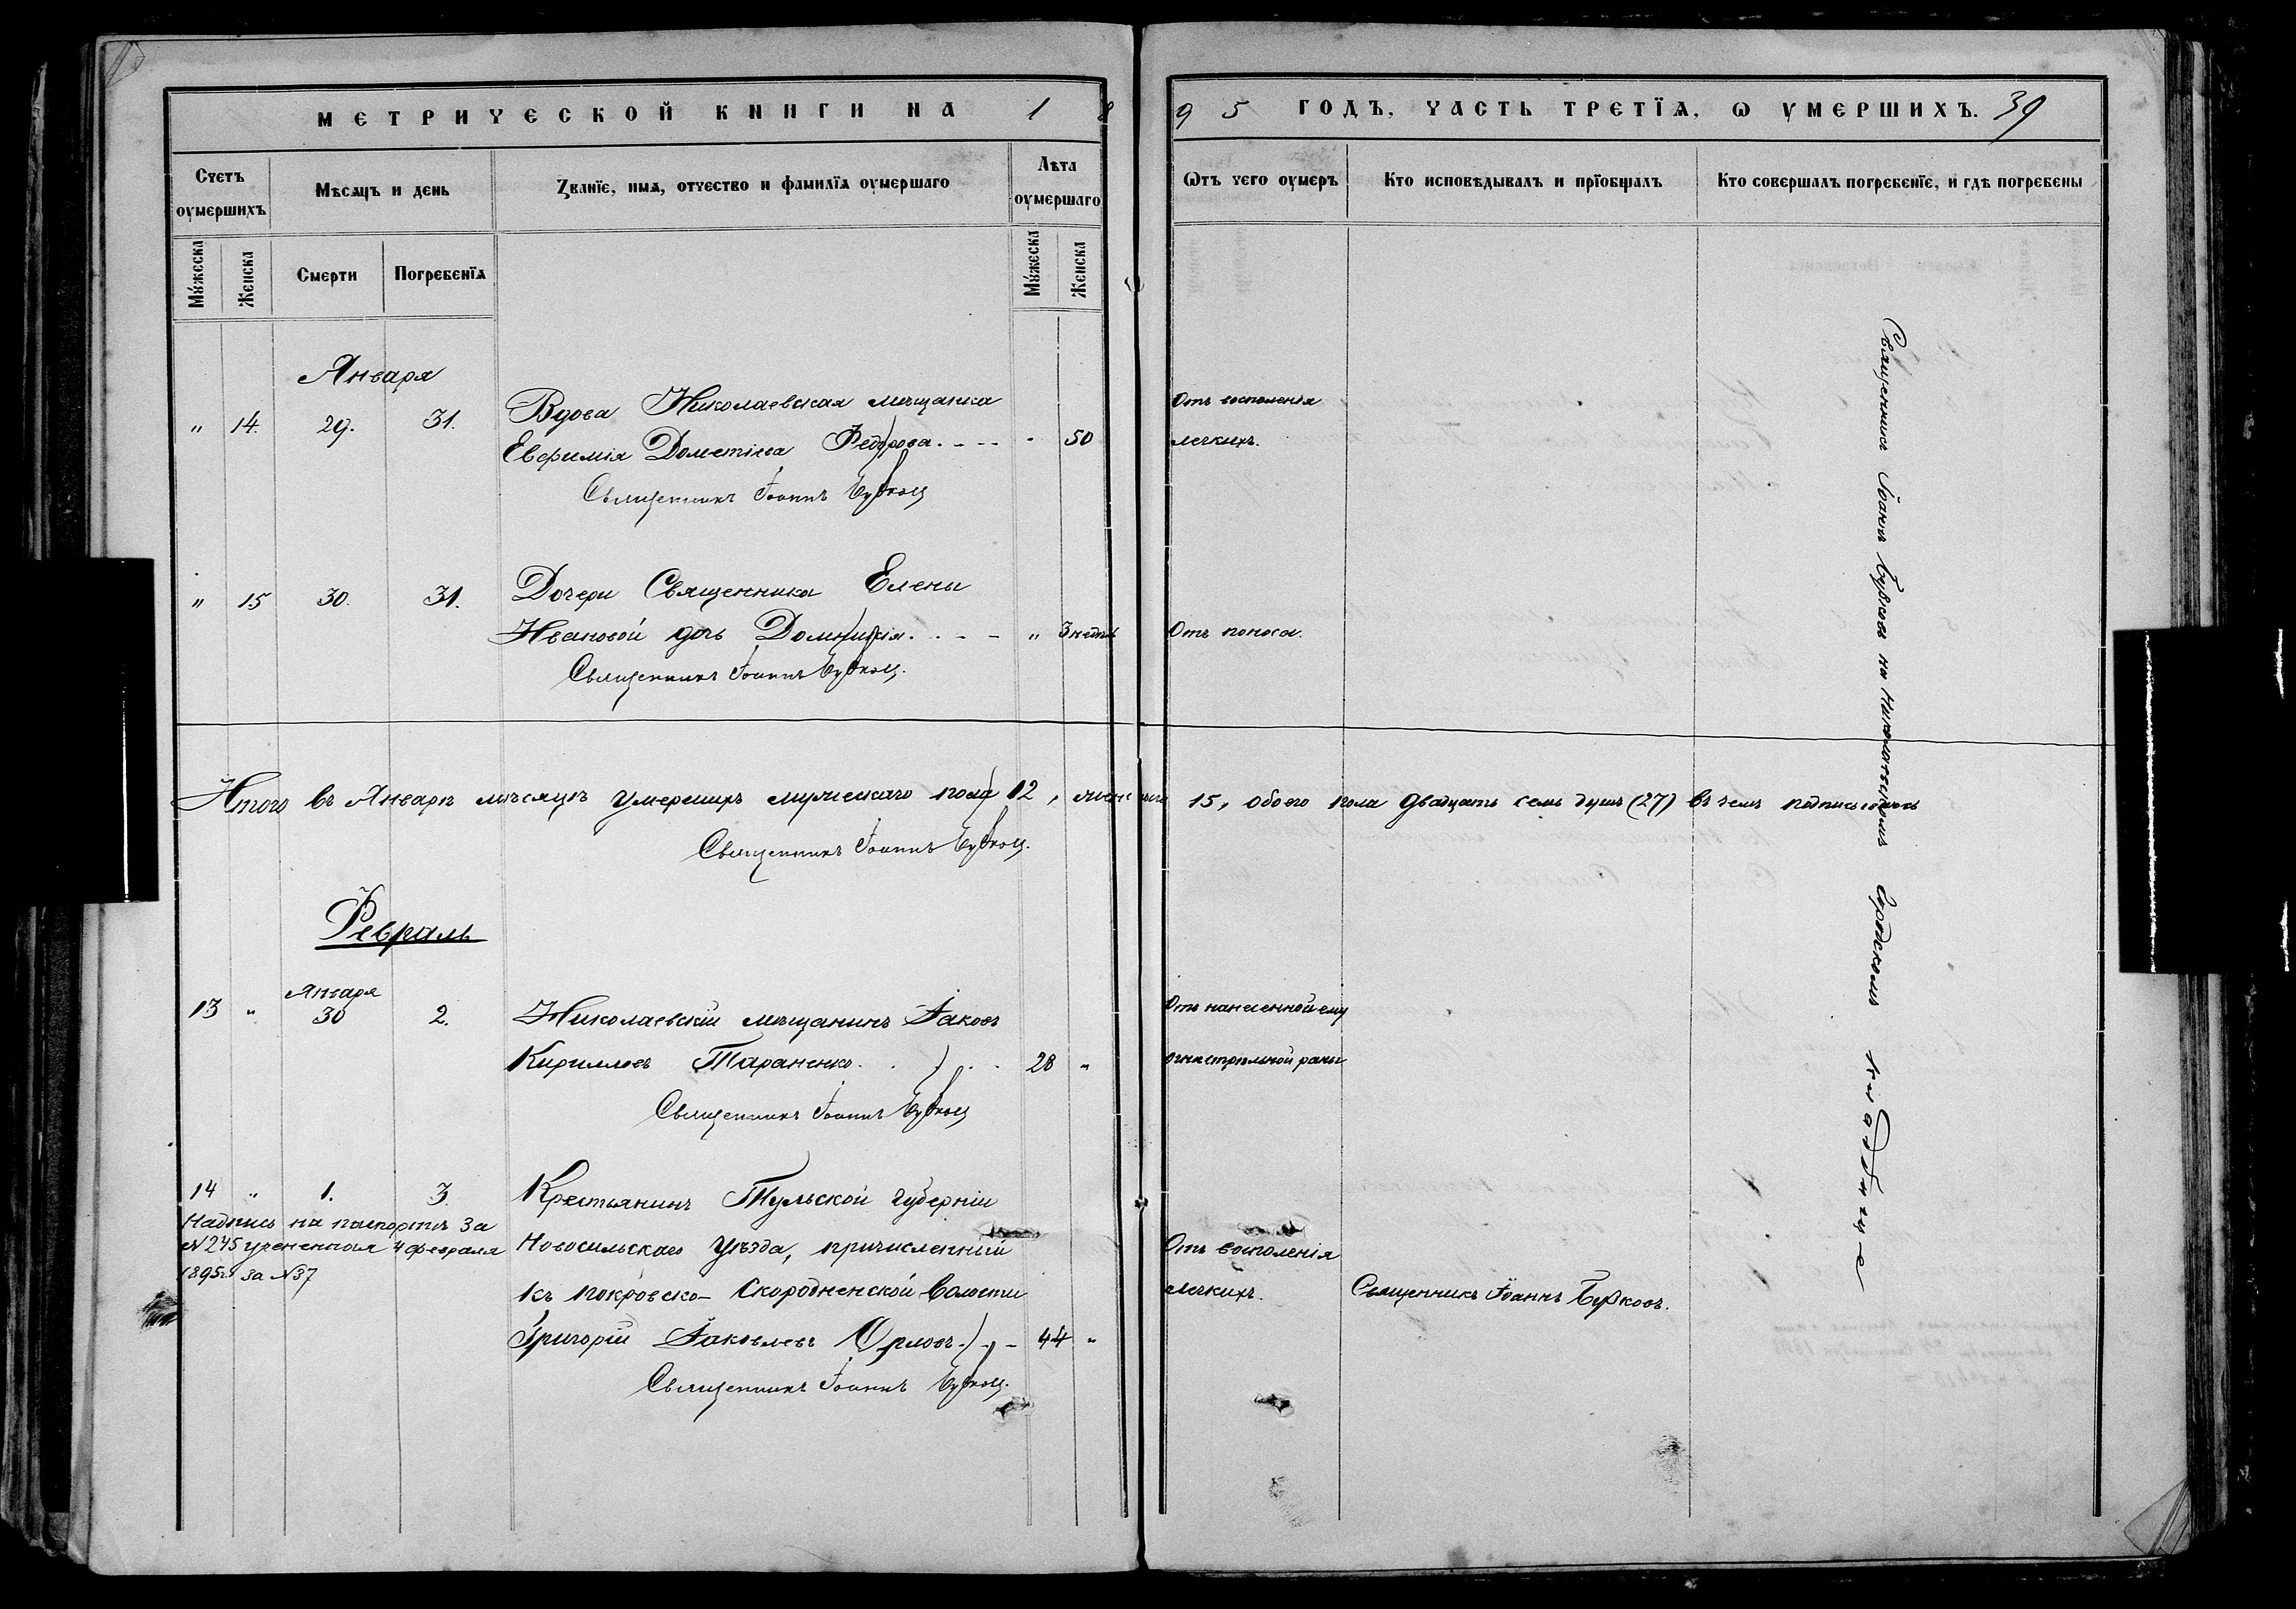 МЕТРИЧЕСКОЙ КНИГИ НА 18
95 ГОДЪ, ЧАСТЬ ТРЕТЇѦ, Ѡ УМЕРШИХЪ. 39
Счетъ оумершихъ
Мѣсѧцъ и день
Званїе, имѧ, отчество и фамилїѧ оумершаго
Лѣта оумершаго
Ѿтъ чего оумеръ
Кто исповѣдывалъ и прїобщалъ
Кто совершалъ погребенїе, и гдѣ погребены
Мꙋжеска
Женска
Смерти
Погребенїѧ
Мꙋжеска
Женска
Января
" 14. 29. 31. Вдова Николаевская мѣщанка
Евфимія Дометіева Федорова. - - - - 50
Отъ восполенія
легкихъ.
Священникъ Іоаннъ Бурковъ
" 15 30. 31. Дочери Священника Елены
Ивановой дочь Домникія. - - - " 3 недѣль
Отъ поноса.
Священникъ Іоаннъ Бурковъ.
Итого въ Январѣ мѣсяцѣ умершихъ мужескаго пола 12, женскаго 15, обоего пола двадцать семь душъ (27) въ чемъ подписываюсь
Священникъ Іоаннъ Бурковъ.
Февраль
Января
13 " 30 2. Николаевскій мѣщанинъ Іаковъ
Кирилловъ Тараненко. . . . 28 "
Отъ нанесенной ему
огнестрѣльной раны
Священникъ Іоаннъ Бурковъ
14 " 1. 3. Крестьянинъ Тульской губерніи
Новосильскаго уѣзда, причисленный
къ Покровско-Скородненской Волости
Григорій Іаковлевъ Орловъ. - - 44 "
Надпись на паспортѣ за
№ 245 учененная 4 февраля
1895 г. за № 37
Отъ восполенія
легкихъ.
Священникъ Іоаннъ Бурковъ.
Священникъ Іоаннъ Бурковъ.
Священникъ Іоаннъ Бурковъ на Николаевскомъ Городскомъ кладбище